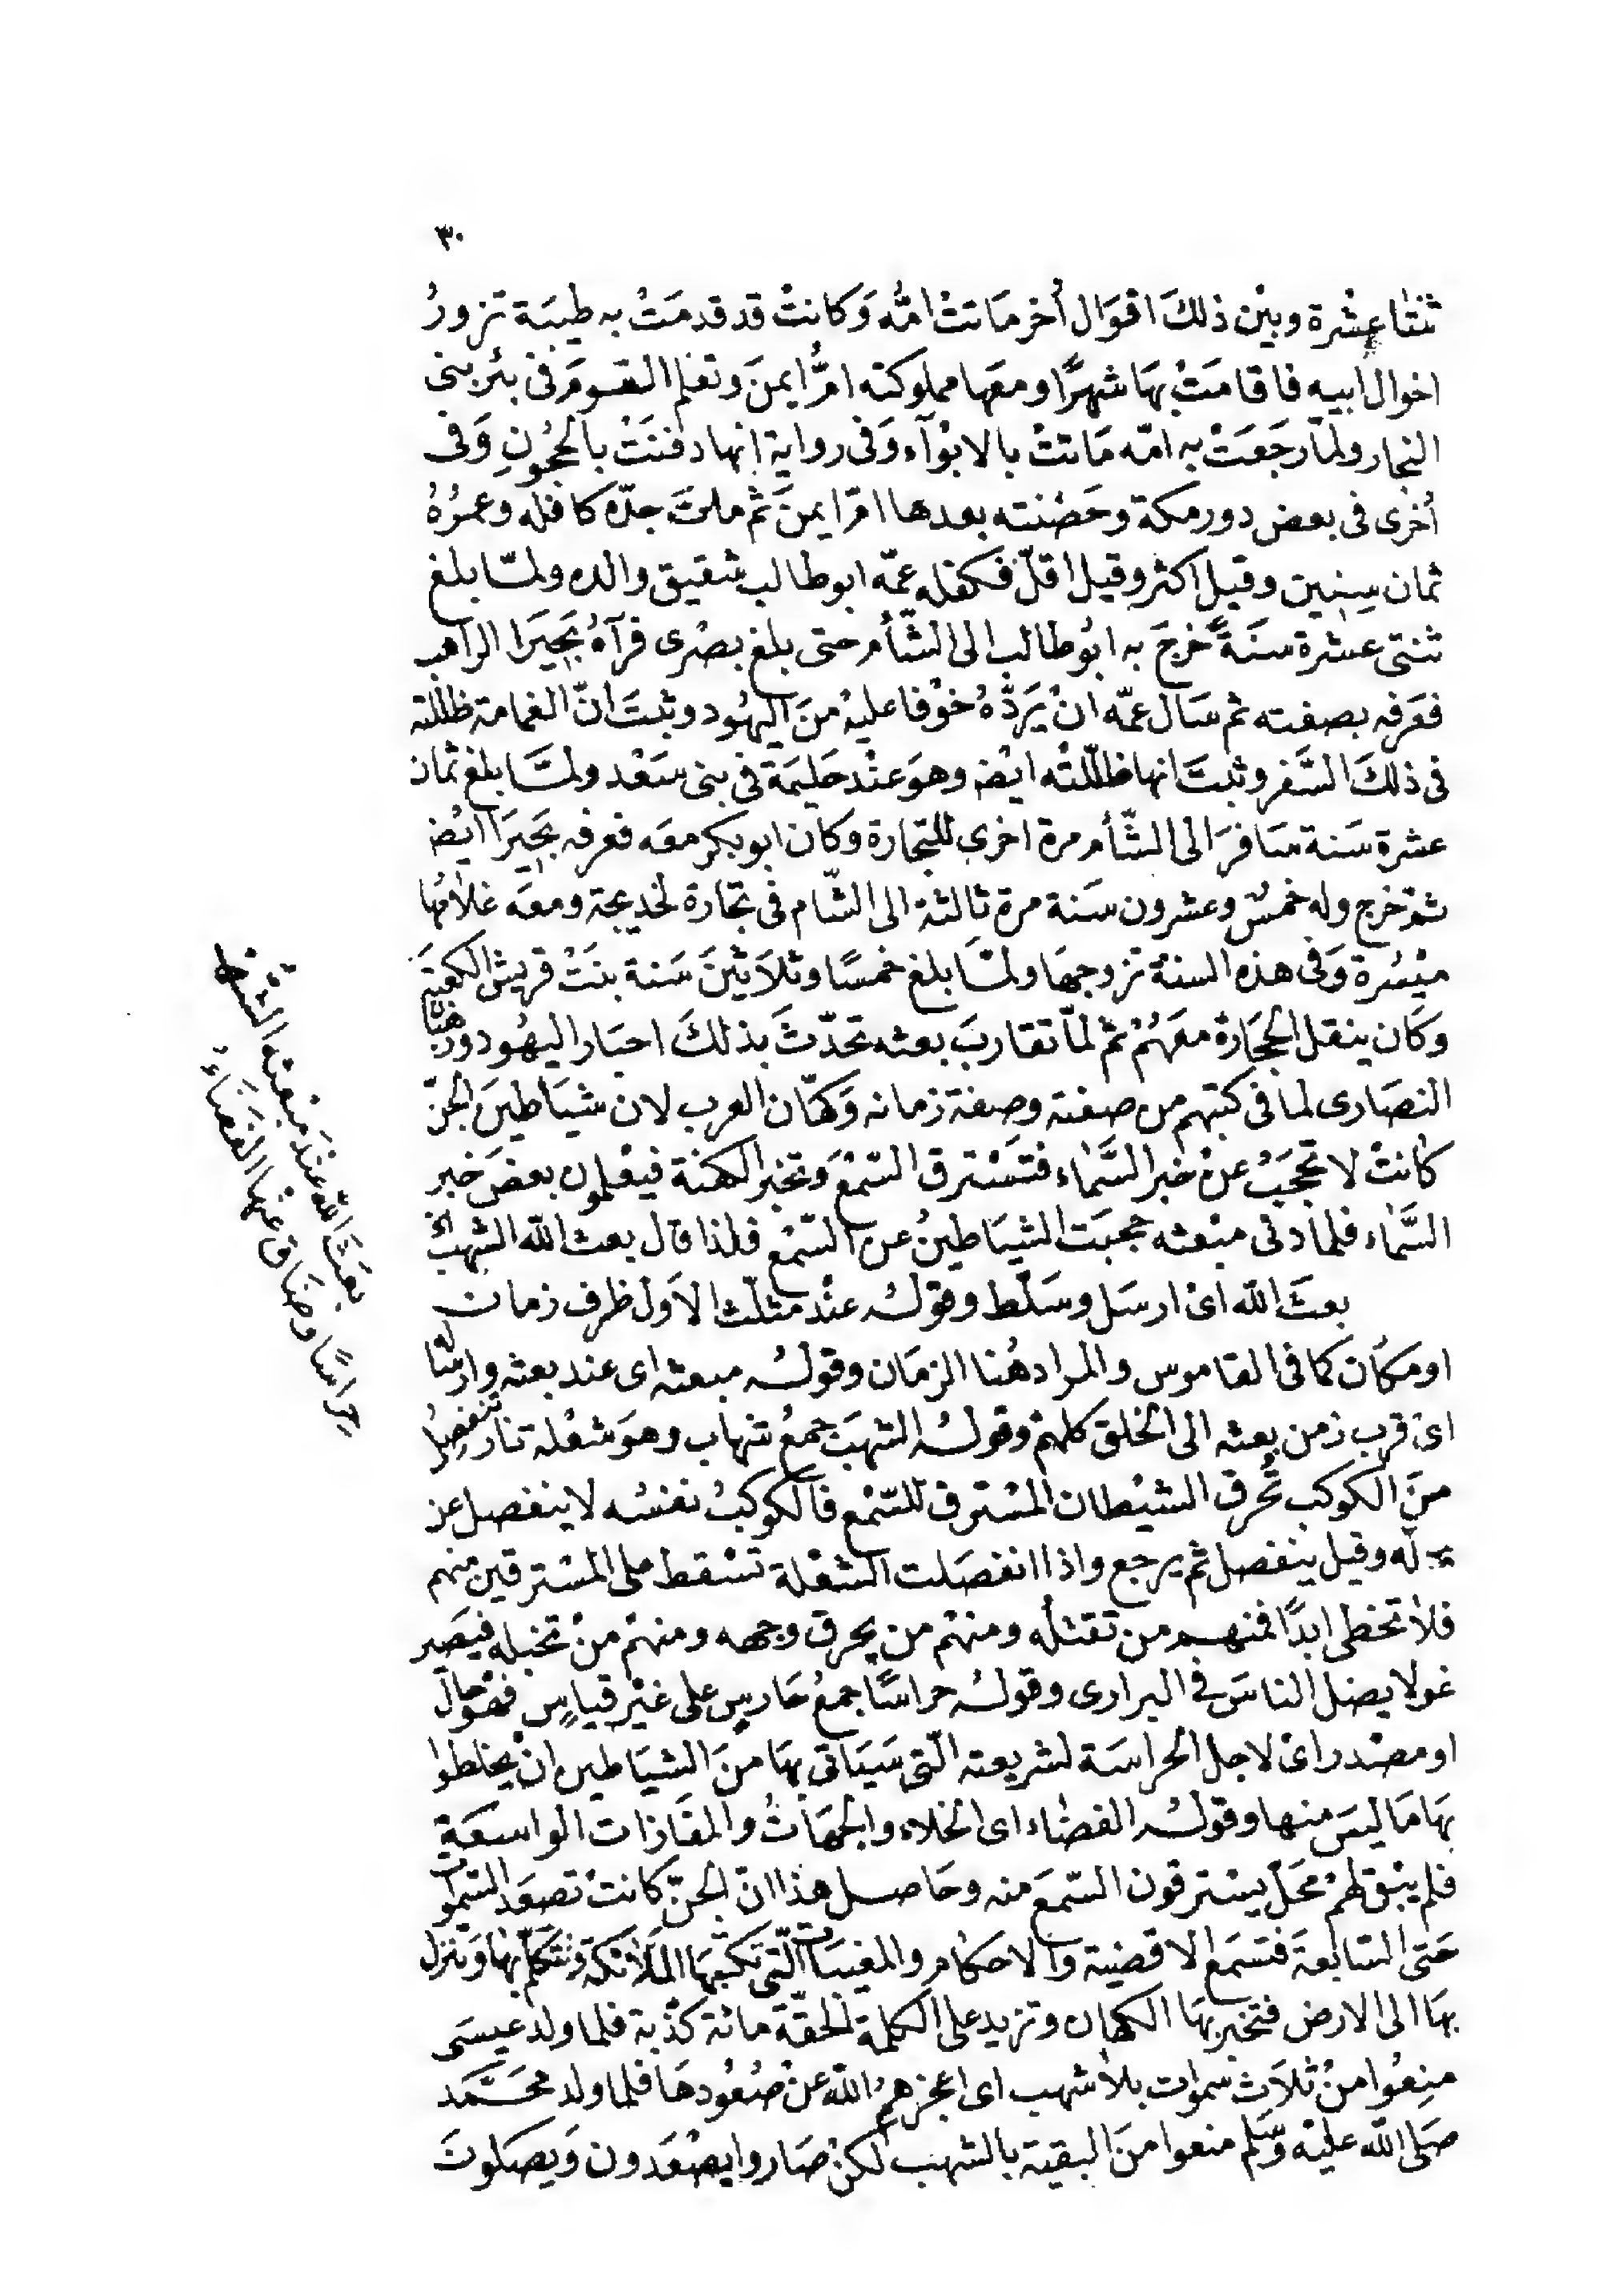 ٣٠
ثنتا عشرة وبين ذلك اقوال أخر ماتت امّه وكانت قد قدمت به طيبة تزور
اخوال ابيه فاقامت بها شهرًا ومعها مملوكته امّ ايمن وتعلم العوم في بئر بني
النجار ولمّا رجعت به امّه ماتت بالابوآء وفي رواية انها دفنت بالحجون وفي
أخرى في بعض دور مكة وحضنته بعدها امّ ايمن ثم مات جدّه كافله وعمره
ثمان سنين وقيل اكثر وقيل اقلّ فكفله عمّه ابو طالب شقيق والده ولمّا بلغ
ثنتى عشرة سنة خرج به ابو طالب الى الشّأم حتى بلغ بصرى فرآه بحيرا الراهب
فعرفه بصفته ثم سال عمّه ان يردّه خوفا عليه من اليهود وثبت انّ الغمامة ظللته
في ذلك السّفر وثبت انها ظللته ايضا وهو عند حليمة في بني سعد ولمّا بلغ ثمان
عشرة سنة سافر الى الشّأم مرة اخرى للتجارة وكان ابو بكر معه فعرفه بحيرا ايضا
ثم خرج وله خمس وعشرون سنة مرة ثالثة الى الشّام في تجارة لخديجة ومعه غلامها
ميسرة وفي هذه السنة تزوجها ولمّا بلغ خمسًا وثلاثين سنة بنت قريش الكعبة
وكان ينقل الحجارة معهم ثم لمّا تقارب بعثه تحدّث بذلك احبار اليهود ورهبان
النصارى لما في كتبهم من صفته وصفة زمانه وكهّان العرب لان شياطين الجنّ
كانت لا تحجب عن خبر السّماء فتسترق السّمع وتخبر الكهنة فيعلمون بعض خبر
السّماء فلما دنى مبعثه حجبت الشياطين عن السّمع فلذا قال بعث الله الشهب الخ
بعث الله اى ارسل وسلّط وقوله عند مثلّث الاول ظرف زمان
او مكان كما في القاموس والمراد هنا الزمان وقوله مبعثه اى عند بعثه وارساله
اى قرب زمن بعثه الى الخلق كلهم وقوله الشهب جمع شهاب وهو شعلة نار تنفصل
من الكوكب تحرق الشيطان المسترق للسّمع فالكوكب نفسه لا ينفصل عن
محله وقيل ينفصل ثم يرجع واذا انفصلت الشعلة تسقط على المسترقين منهم
فلا تخطى ابدًا فمنهم من تقتله ومنهم من يحرق وجهه ومنهم من تخبله فيصير
غولا يضل الناس في البراري وقوله حراسًا جمع حارس على غير قياس فهو حال
او مصدر اى لاجل الحراسة لشريعته الّتي سياتي بها من الشياطين ان يخلطوا
بها ما ليس منها وقوله الفضاء اى الخلاء والجهات والمفازات الواسعة
فلم يبق لهم محلّ يسترقون السّمع منه وحاصل هذا انّ الجنّ كانت تصعد السّموات
حتى السّابعة فتسمع الاقضية والاحكام والمغيبات الّتي تكتبها الملائكة وتتكلم بها وتنزل
بها الى الارض فتخبر بها الكهان وتزيد على الكلمة الحقّة مائة كذبة فلما ولد عيسى
منعوا من ثلاث سموات بلا شهب اى اعجزهم الله عن صعودها فلما ولد محمّد
صلى الله عليه وسّلم منعوا من البقية بالشهب لكن صاروا يصعدون ويصلون
بعث الله عند مبعثه الشهب
حراسًا وضاق عنها الفضاء